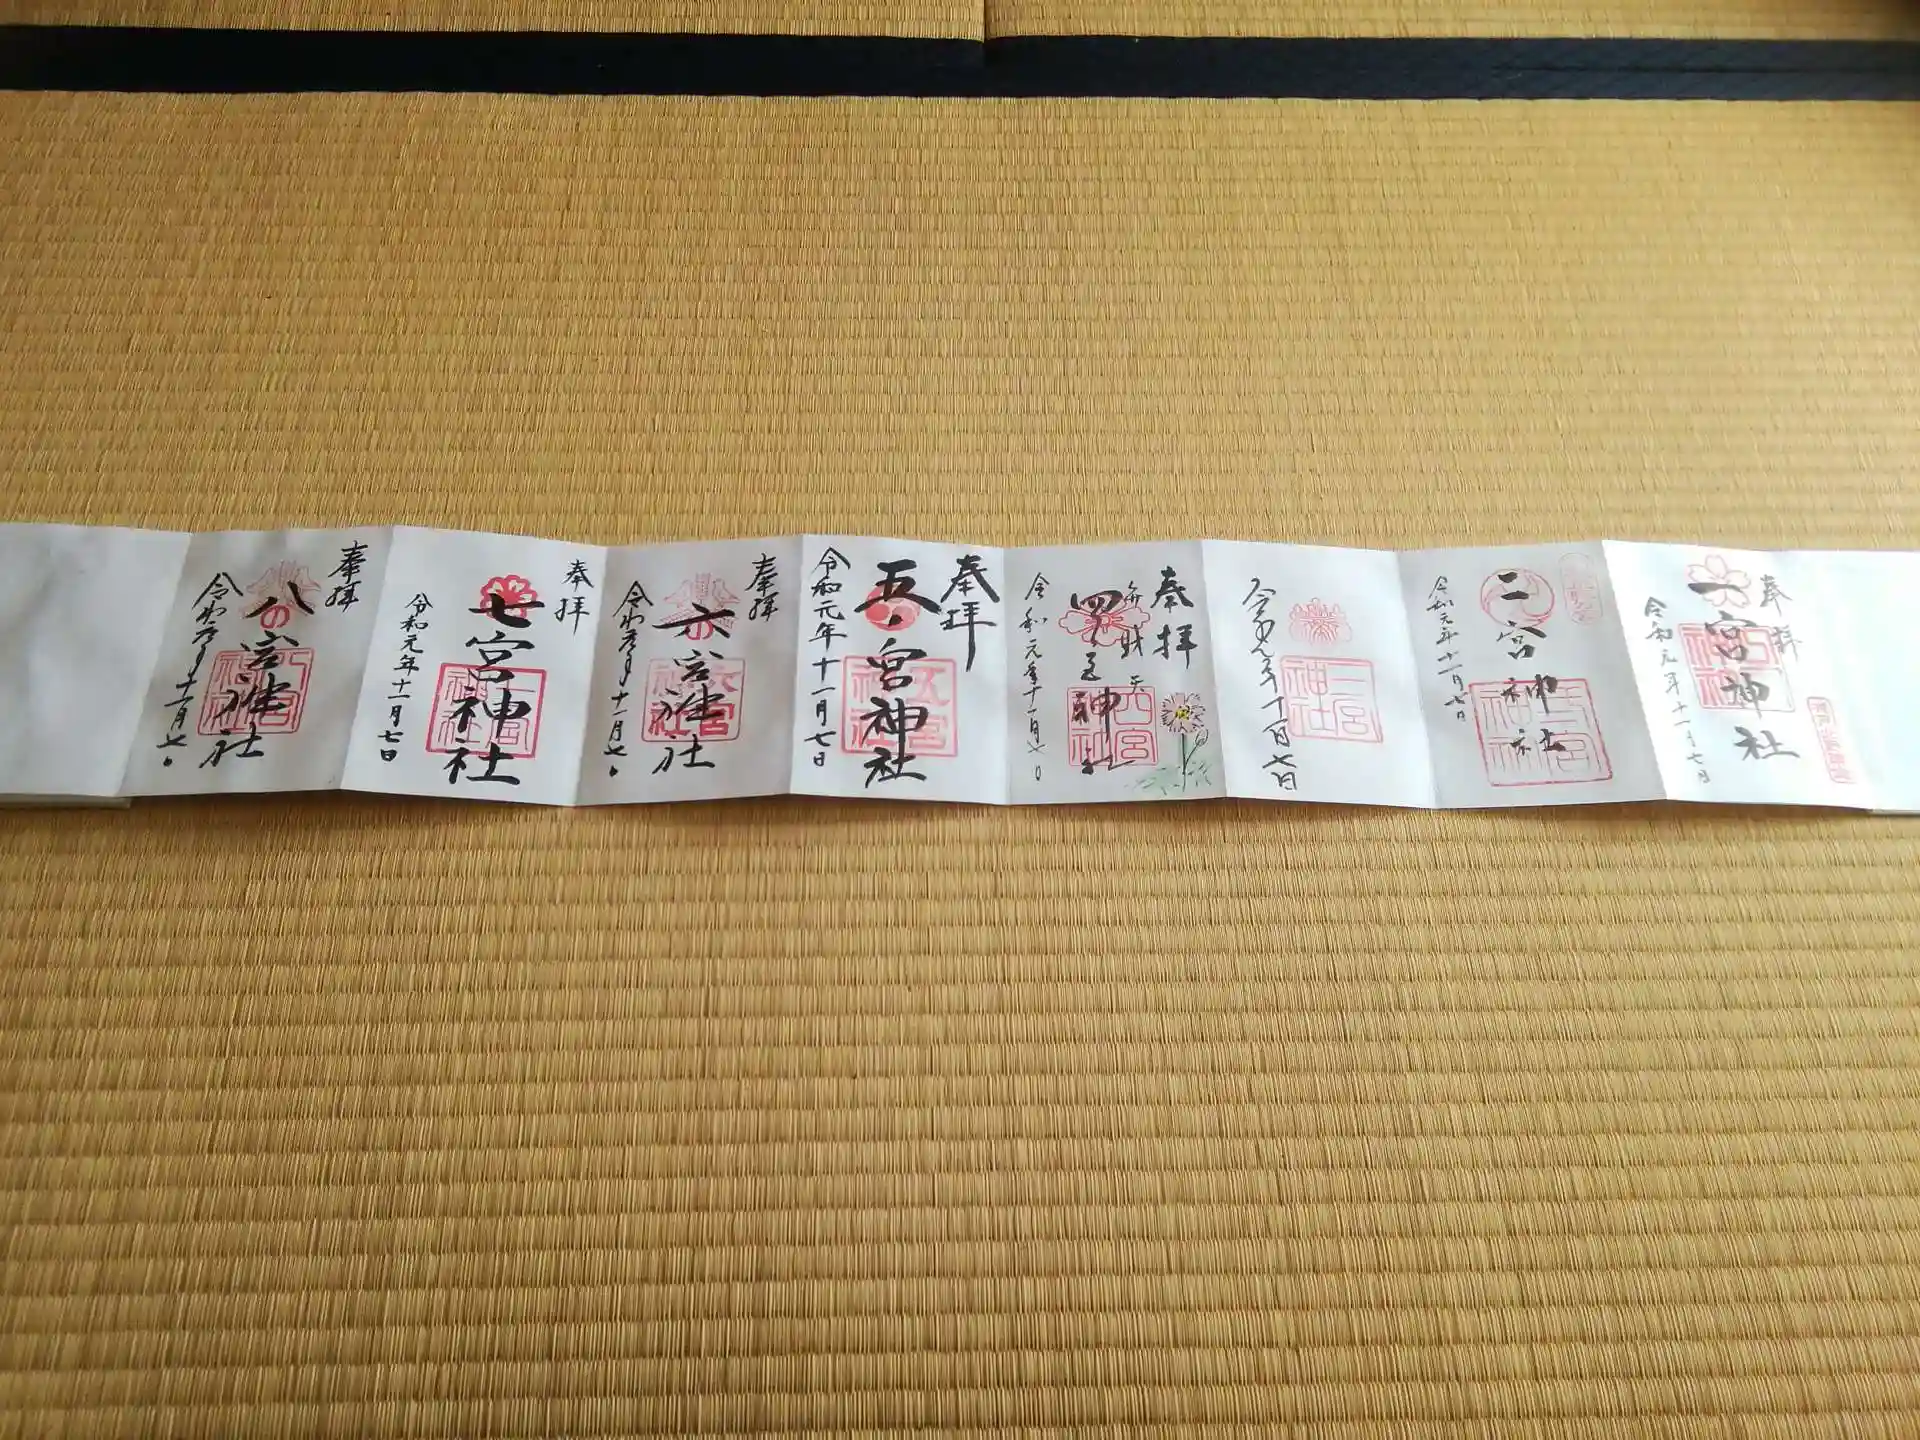 奉拝
一宮神社
令和元年十一月七日
二宮神社
令和元年十一月七日
三宮神社
令和元年十一月七日
奉拝
弁財天
四宮神社
令和元年十一月七日
奉拝
五宮神社
令和元年十一月七日
奉拝
六宮神社
令和元年十一月七日
奉拝
七宮神社
令和元年十一月七日
奉拝
八宮神社
令和元年十一月七日